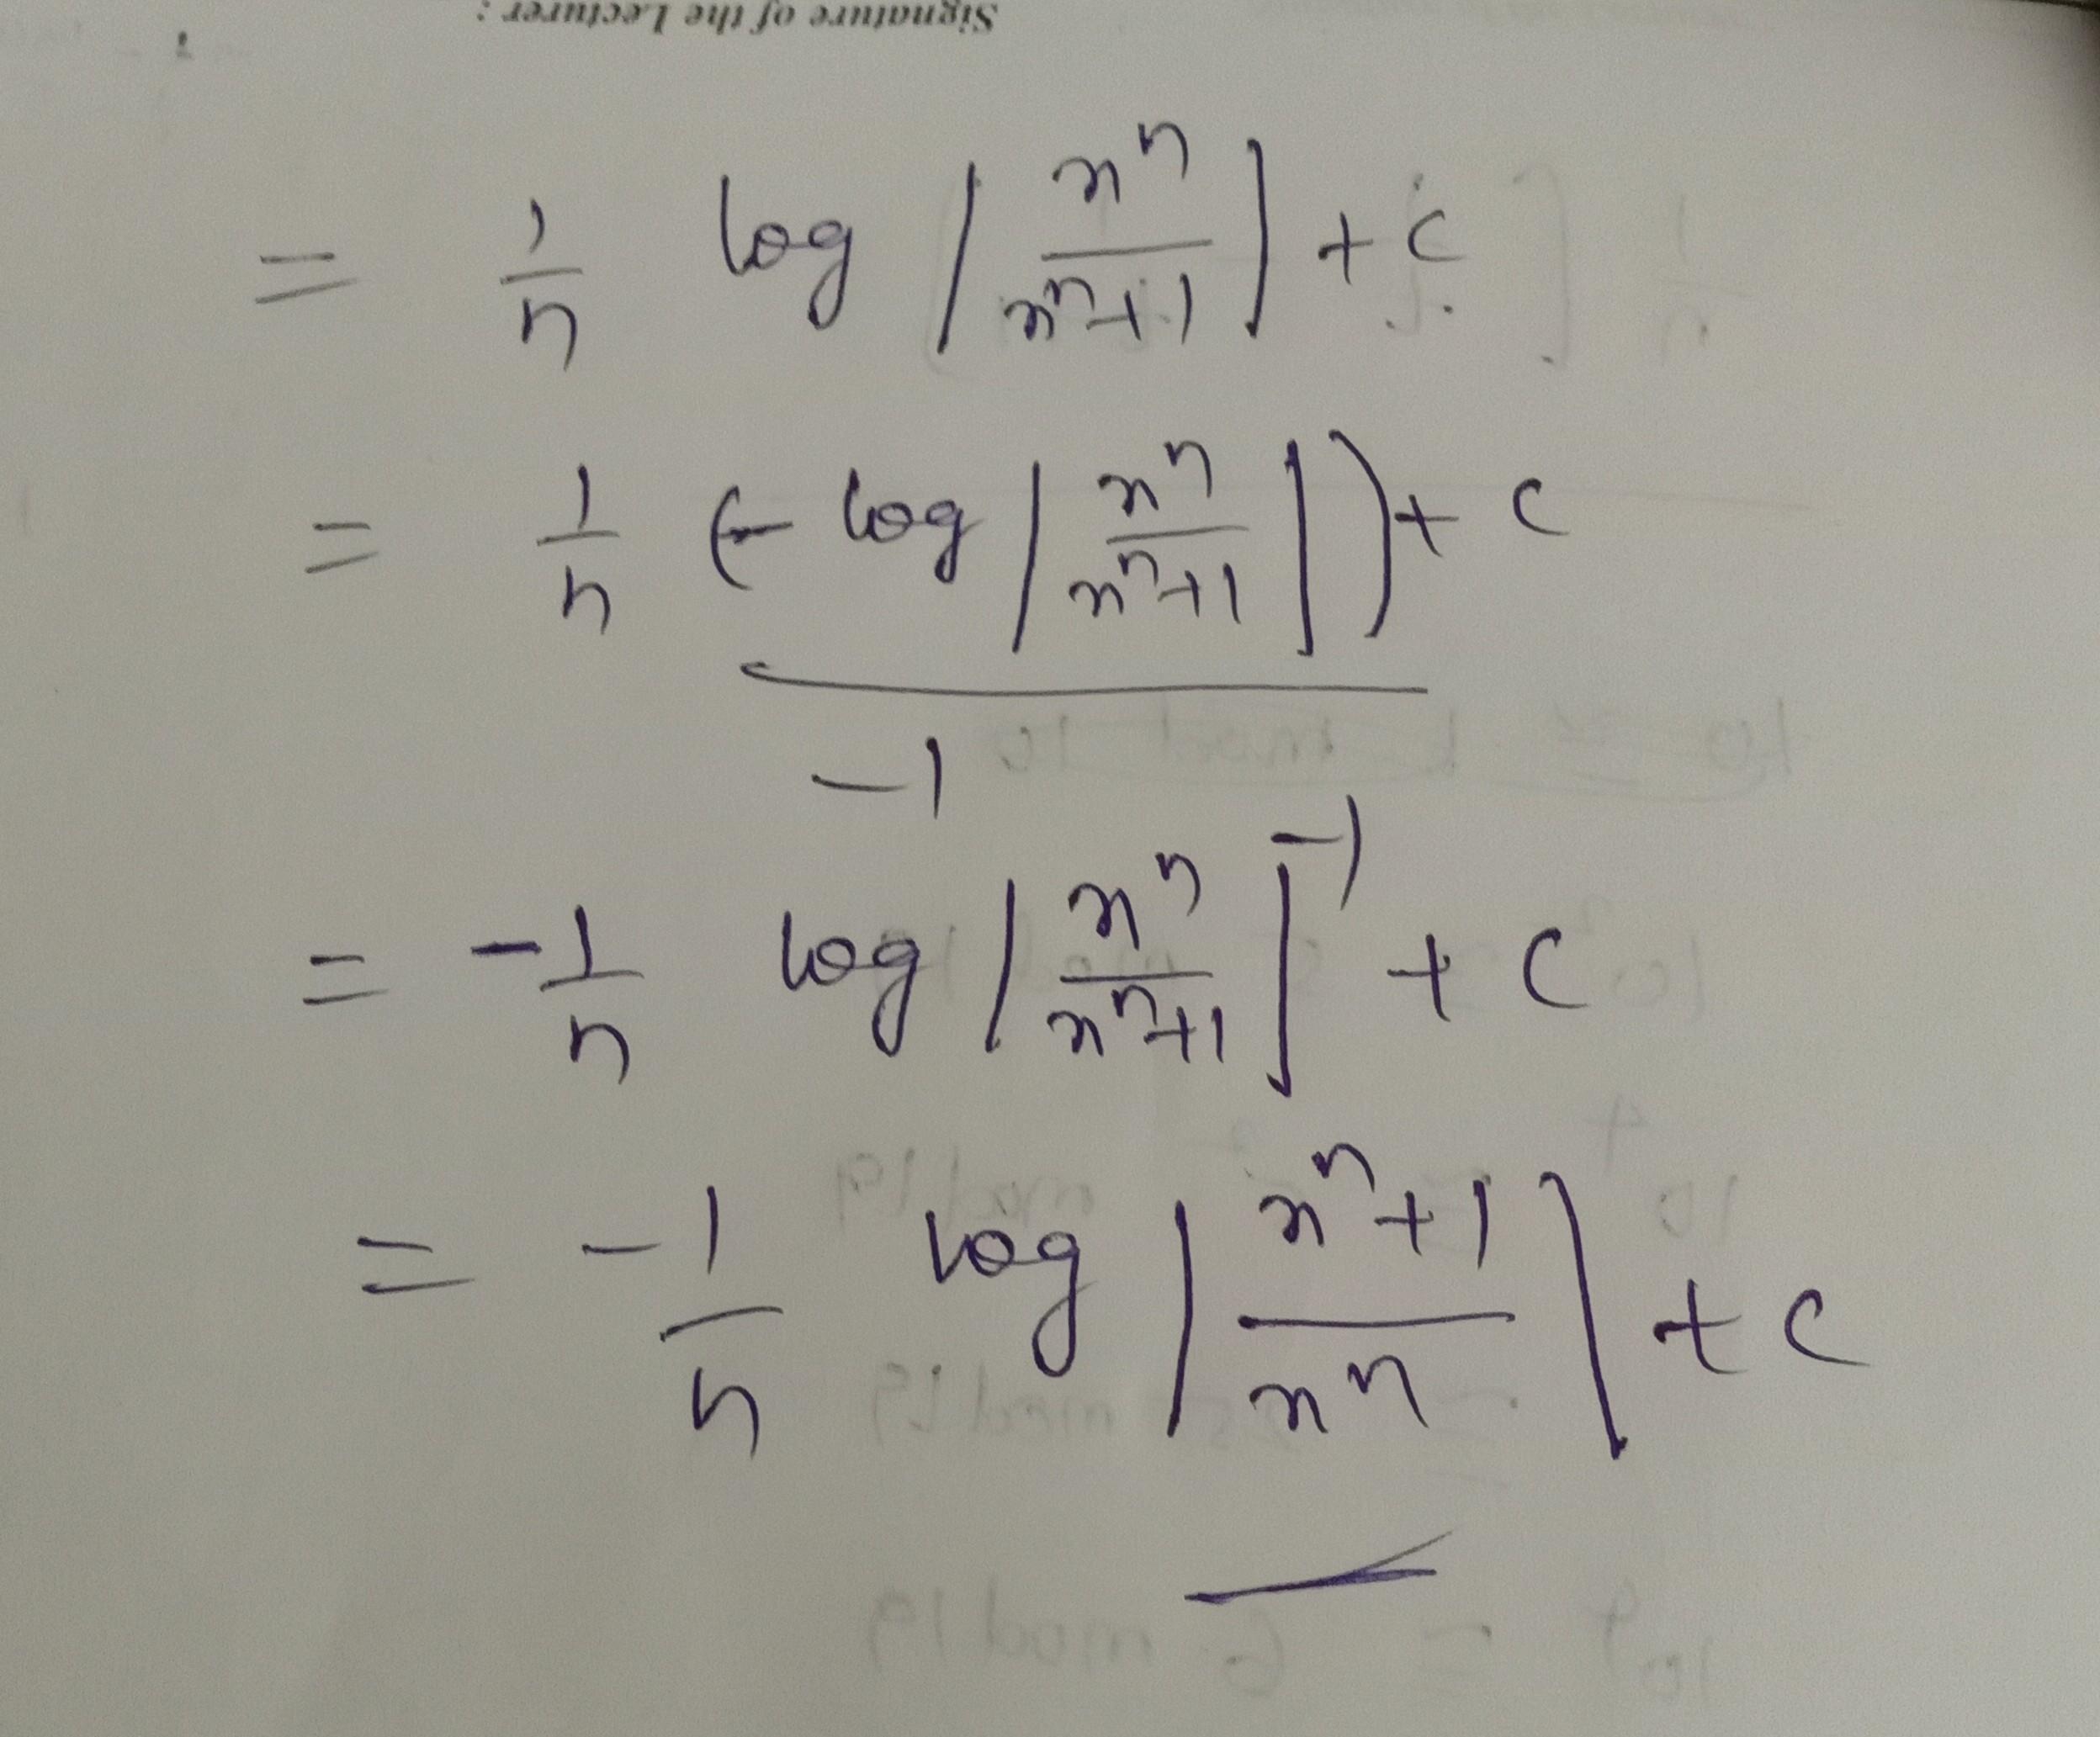 Signature of the Lecturer :
= 1/n log |x^n/(x^n+1)| + c
= 1/n (- log |x^n/(x^n+1)|) + c
-1
= -1/n log |x^n/(x^n+1)|^-1 + c
= -1/n log |(x^n+1)/x^n| + c